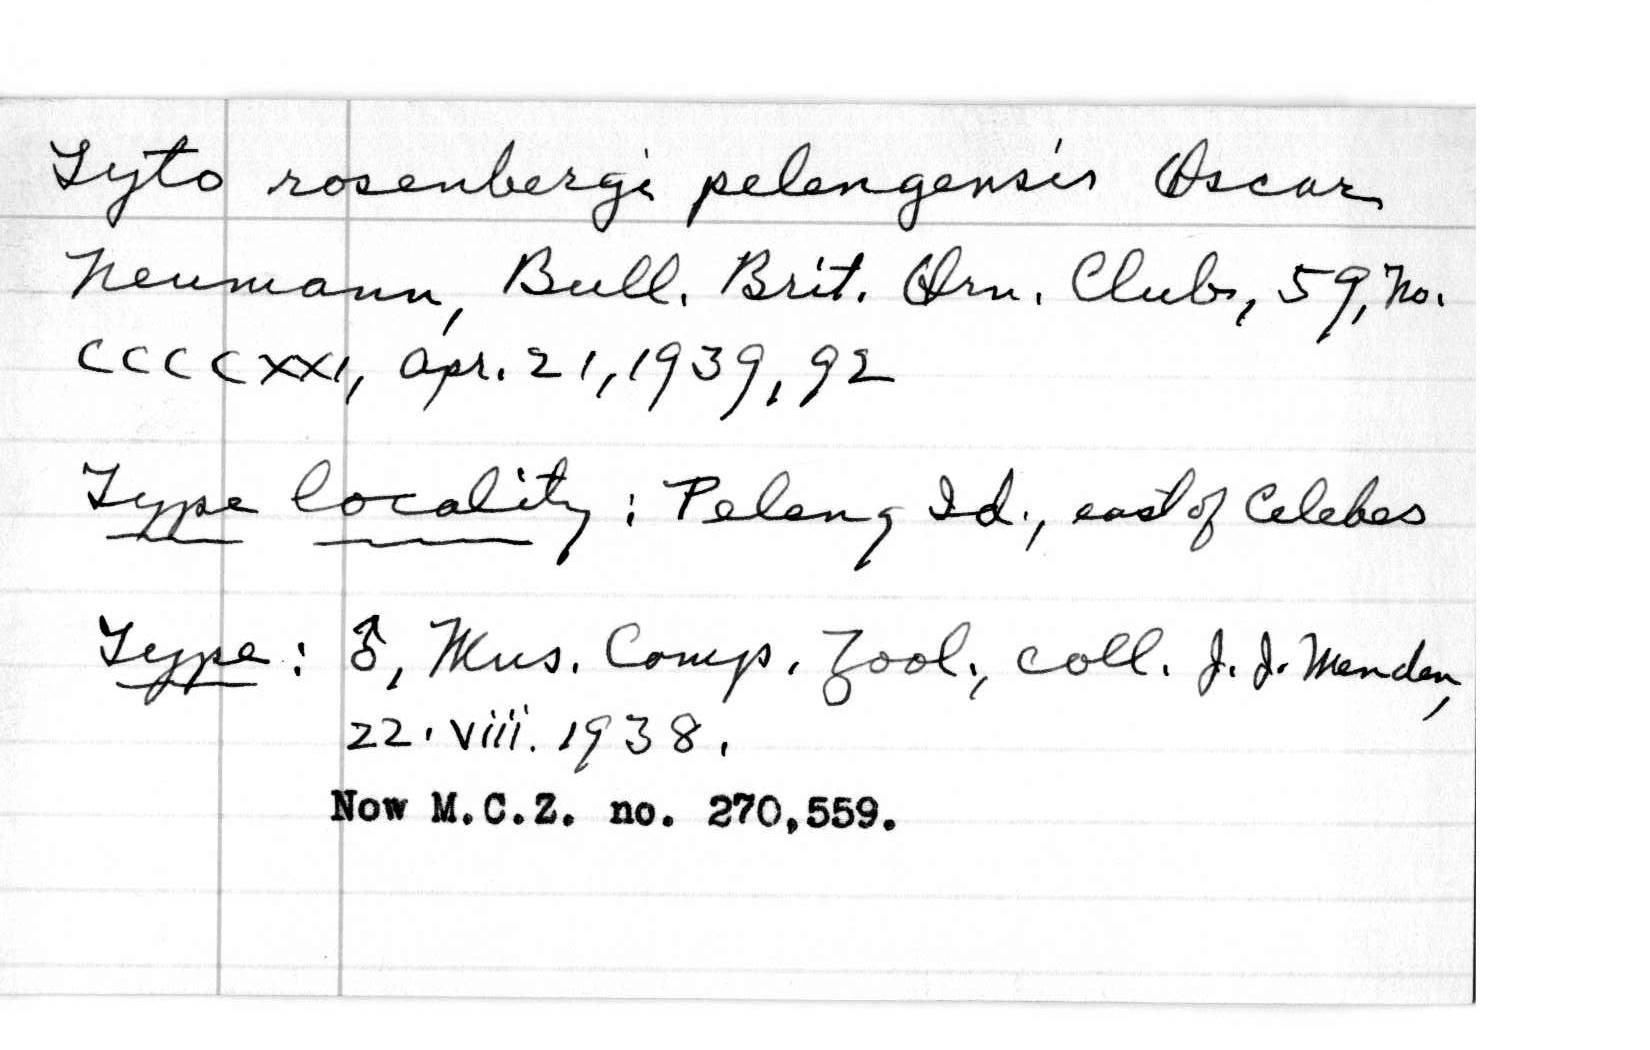 Tyto rosenbergi pelengensis Oscar
Neumann, Bull. Brit. Orn. Club, 59, No.
CCCCXXI, Apr. 21, 1939, 92
Type locality: Peleng Id., east of Celebes
Type: ♂, Mus. Comp. Zool., coll. J. J. Menden,
22. viii. 1938.
Now M.C.Z. no. 270,559.